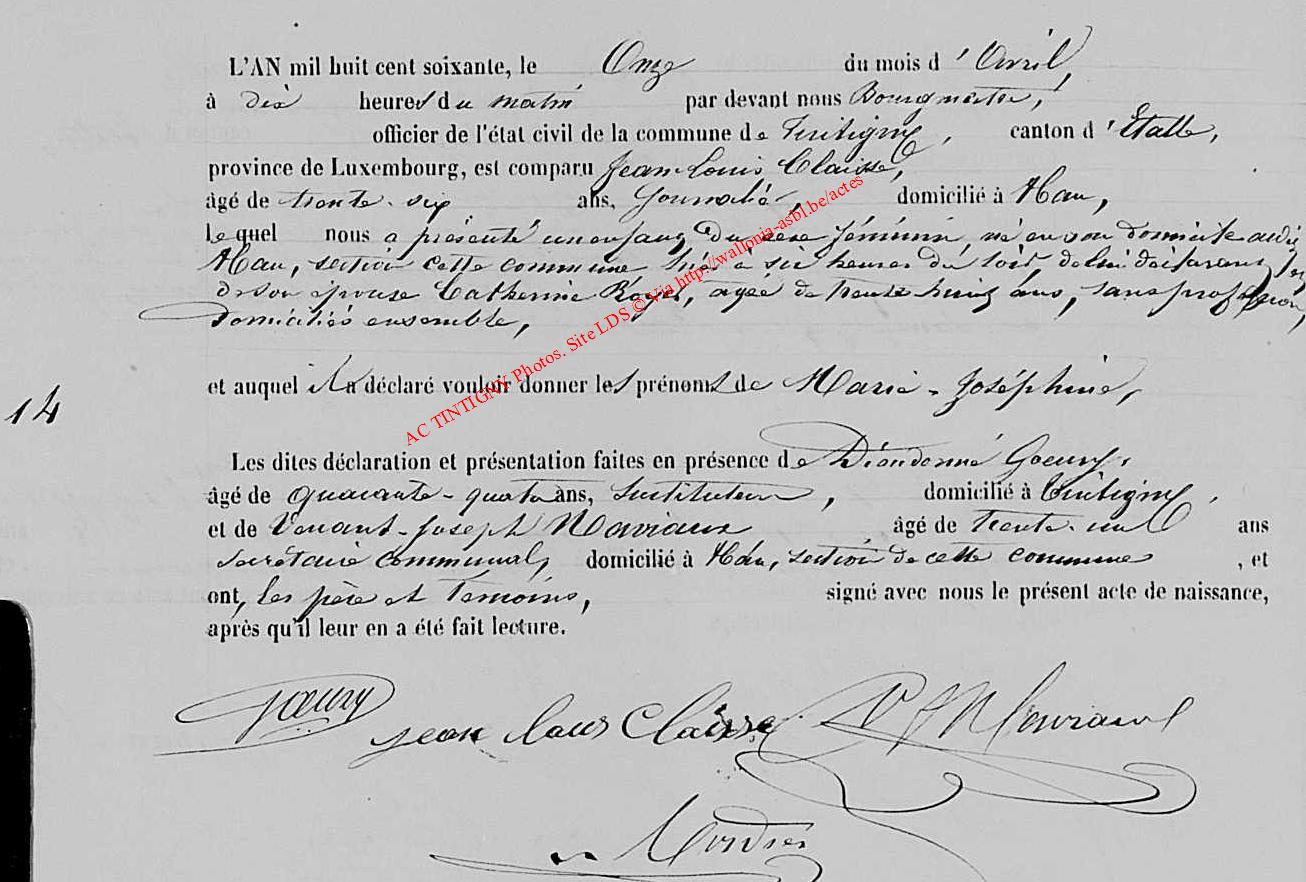 L'AN mil huit cent soixante, le Onze du mois d'Avril,
à dix heures du matin par devant nous Bourgmestre,
officier de l'état civil de la commune de Tintigny, canton d'Etalle,
province de Luxembourg, est comparu Jean-Louis Claisse,
âgé de trente-six ans, Journalier, domicilié à Han,
lequel nous a présenté un enfant du sexe féminin, né en son domicile audit
Han, section cette commune hier à six heures du soir, de lui déclarant et
de son épouse Catherine Roger, agée de trente huit ans, sans profession,
domiciliés ensemble,
et auquel il a déclaré vouloir donner les prénoms de Marie-Joséphine,
14
Les dites déclaration et présentation faites en présence de Dieudonné Goeury,
âgé de quarante-quatre ans, Instituteur, domicilié à Tintigny,
et de Venant-Joseph âgé de trente-un ans
secrétaire communal, domicilié à Han, section de cette commune, et
ont, les père et témoins, signé avec nous le présent acte de naissance,
après qu'il leur en a été fait lecture.
Goeury
jean louis Claisse
AC TINTIGNY Photos. Site LDS © Via http://wallonia-asbl.be/actes